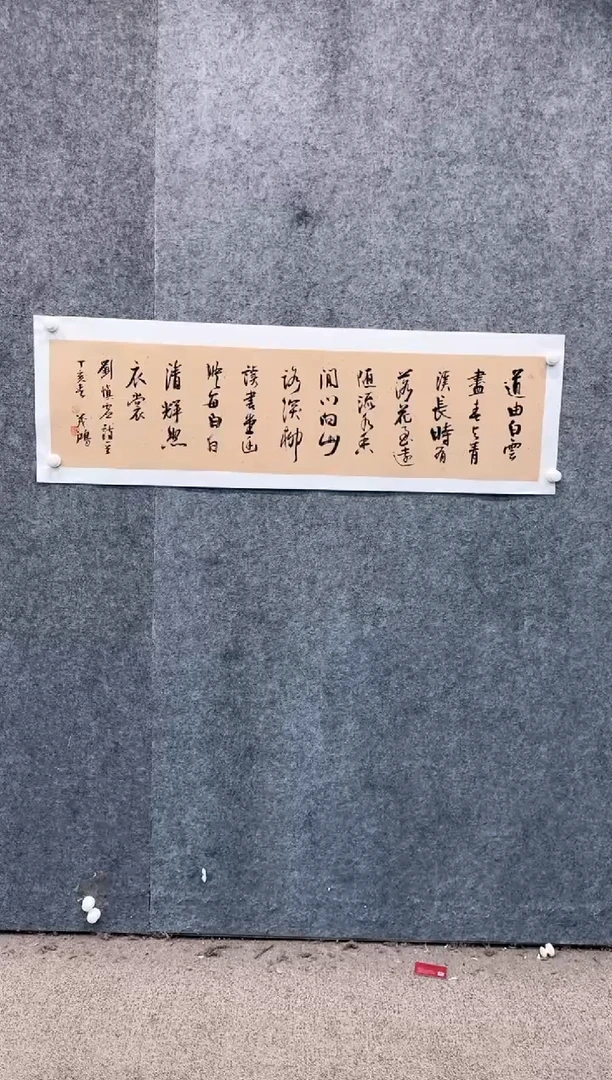 道由白雲
盡春与青
溪長時有
落花至遠
随流水香
閒門向山
路深柳
讀書堂幽
映每白日
清輝照
衣裳
劉慎虛詩
丁亥
鴻